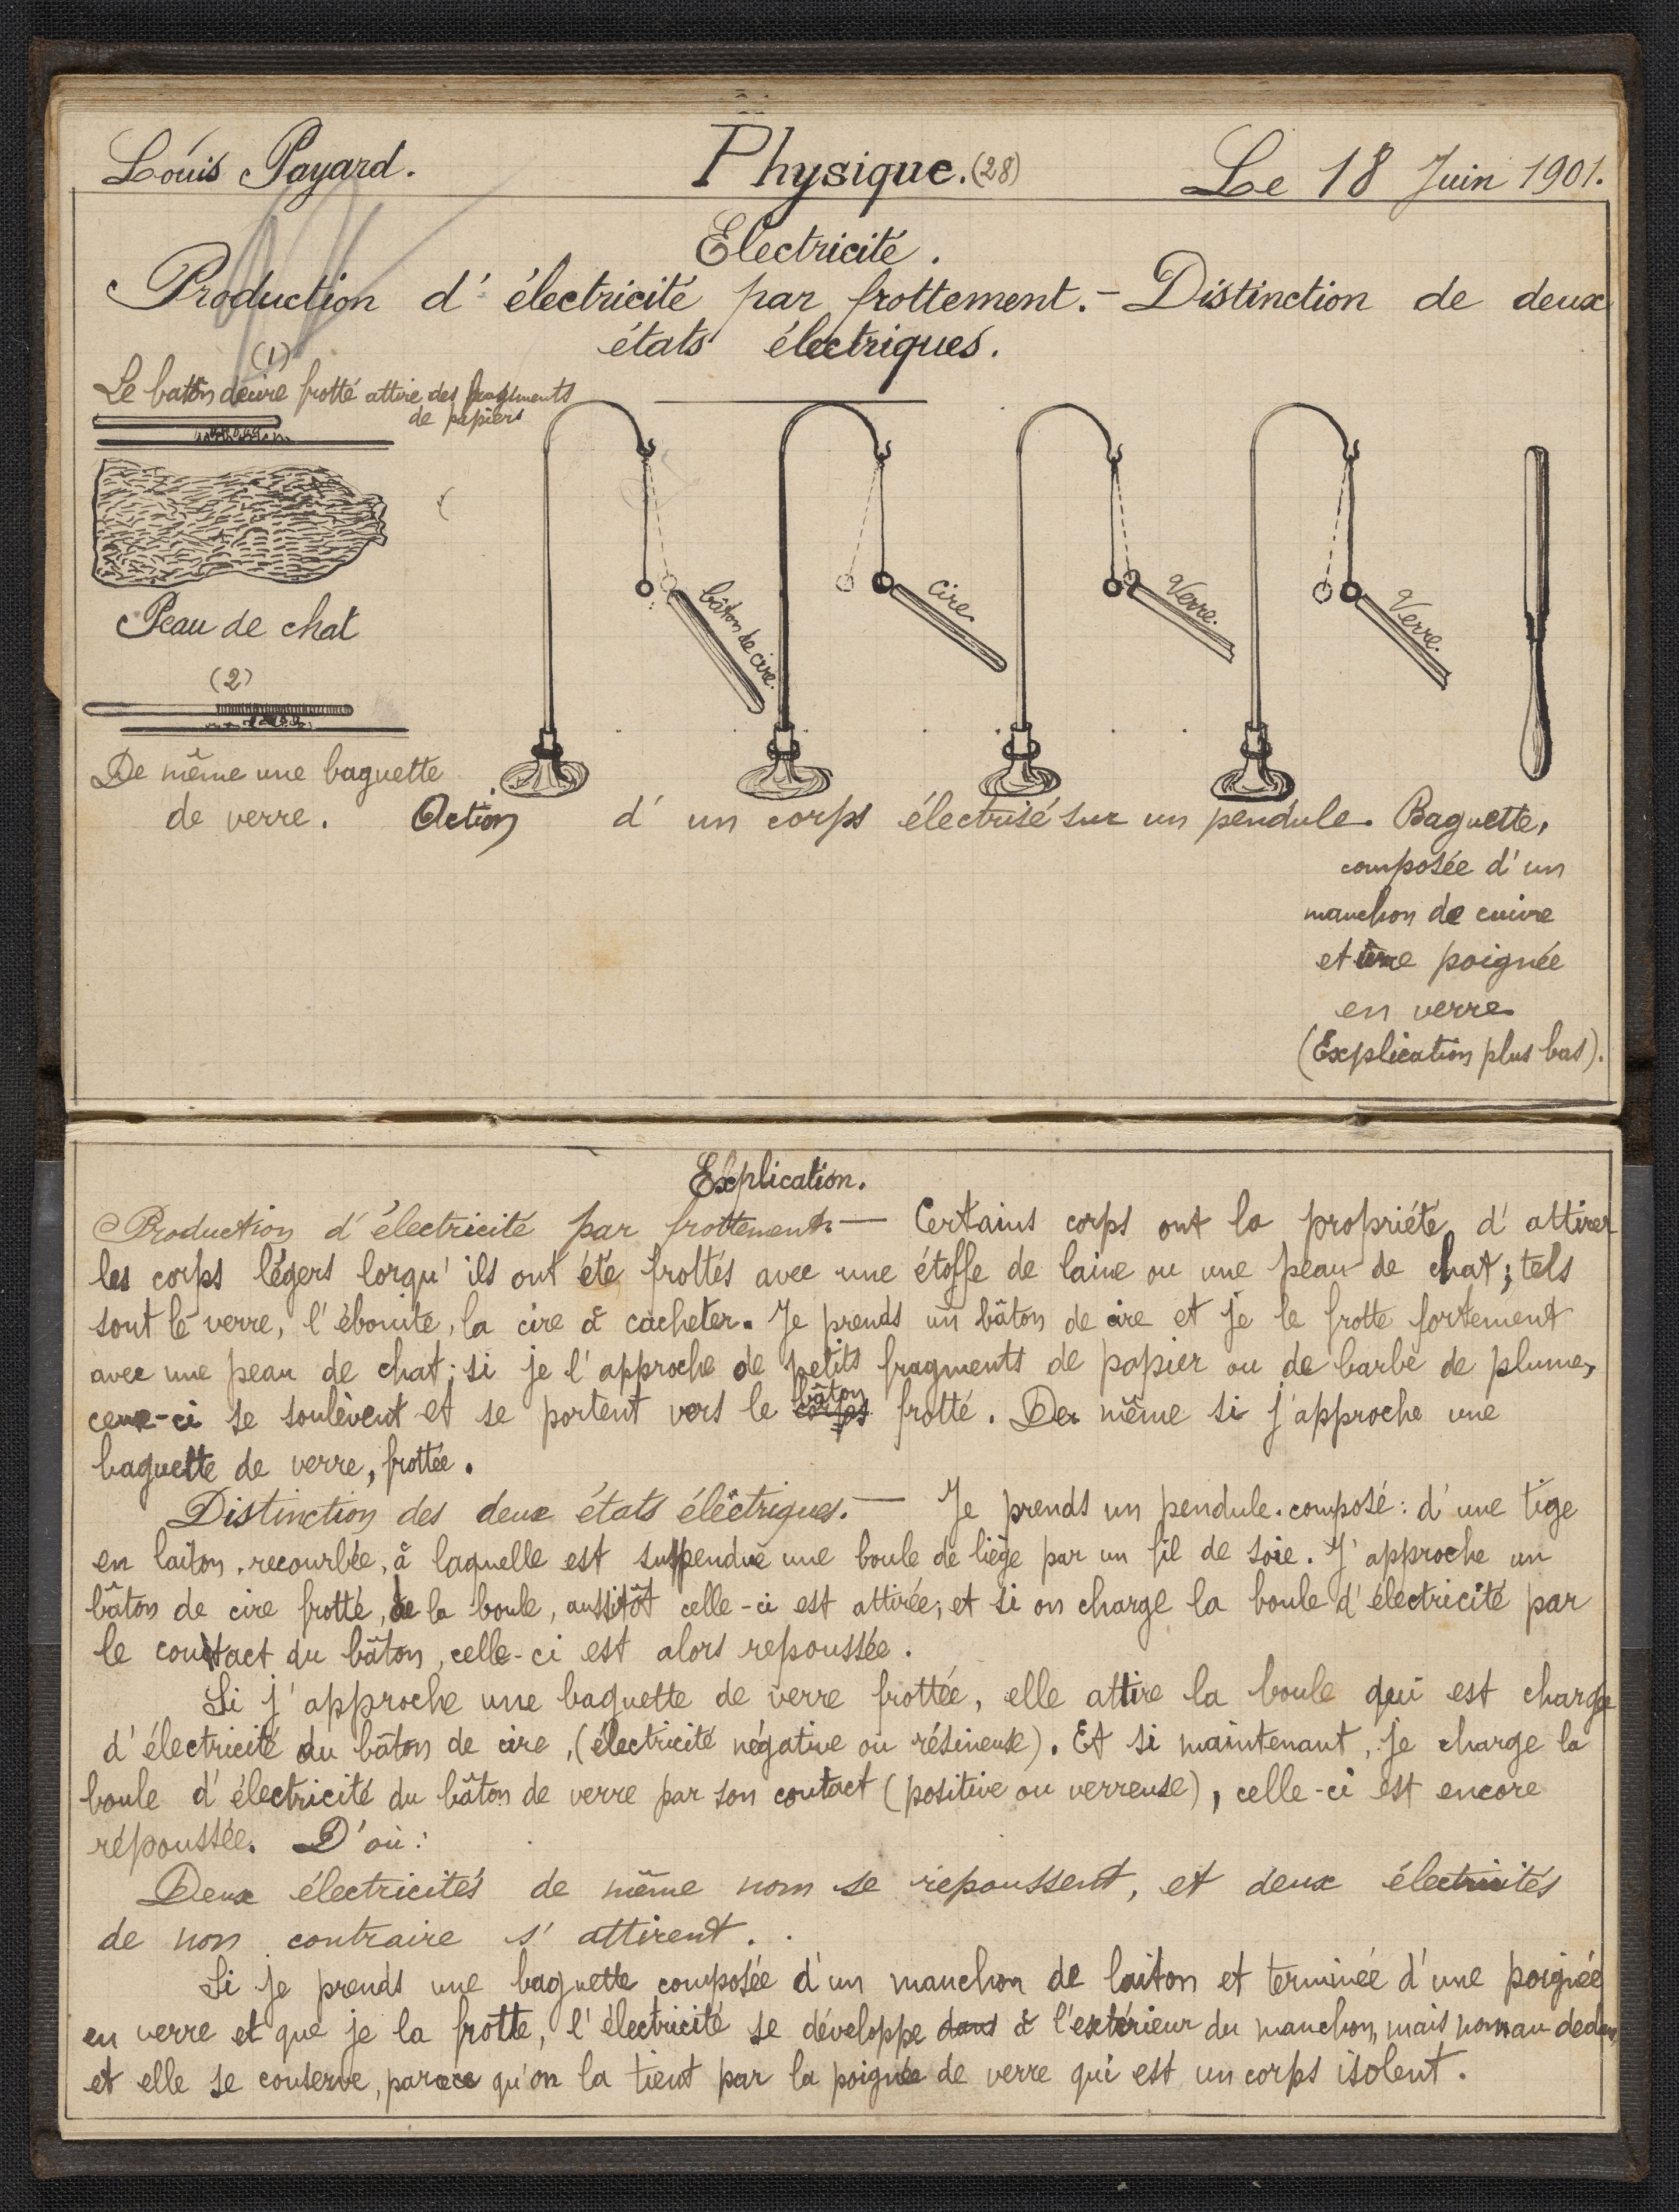 Louis Payard.
Physique. (28)
Le 18 Juin 1901.
Electricité.
Production d'électricité par frottement. - Distinction de deux
états électriques.
(1)
Le bâton de cire frotté attire des fragments
de papiers
Peau de chat
(2)
De même une baguette
de verre.
bâton de cire.
Cire.
Verre.
Verre.
Action d'un corps électrisé sur un pendule.
Baguette,
composée d'un
manchon de cuivre
et une poignée
en verre
(Explication plus bas).
Explication.
Production d'électricité par frottement. — Certains corps ont la propriété d'attirer
les corps légers lorqu'ils ont été frottés avec une étoffe de laine ou une peau de chat; tels
sont le verre, l'ébonite, la cire à cacheter. Je prends un bâton de cire et je le frotte fortement
avec une peau de chat; si je l'approche de petits fragments de papier ou de barbe de plume,
ceux-ci se soulèvent et se portent vers le corps bâton frotté. De même si j'approche une
baguette de verre, frottée.
Distinction des deux états éléctriques. — Je prends un pendule composé: d'une tige
en laiton, recourbée, à laquelle est suspendue une boule de liège par un fil de soie. J'approche un
bâton de cire frotté, de la boule, aussitôt celle-ci est attirée; et si on charge la boule d'électricité par
le contact du bâton, celle-ci est alors repoussée.
Si j'approche une baguette de verre frottée, elle attire la boule qui est chargée
d'électricité du bâton de cire, (électricité négative ou résineuse). Et si maintenant, je charge la
boule d'électricité du bâton de verre par son contact (positive ou verreuse), celle-ci est encore
répoussée. D'où:
Deux électricités de même nom se repoussent, et deux électricités
de non contraire s'attirent.
Si je prends une baguette composée d'un manchon de laiton et terminée d'une poignée
en verre et que je la frotte, l'électricité se développe dans à l'extérieur du manchon, mais non au dedans,
et elle se conserve, parcece qu'on la tient par la poignée de verre qui est un corps isolent.